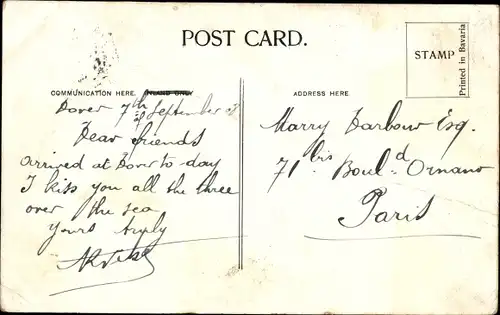 POST CARD.
STAMP
Printed in Bavaria
COMMUNICATION HERE. INLAND ONLY
ADDRESS HERE
Dover 7th September
Dear friends
arrived at Dover to-day
I kiss you all the three
over the sea
Yours
Harry Barbour Esq.
71 bis Boul.d Ornano
Paris